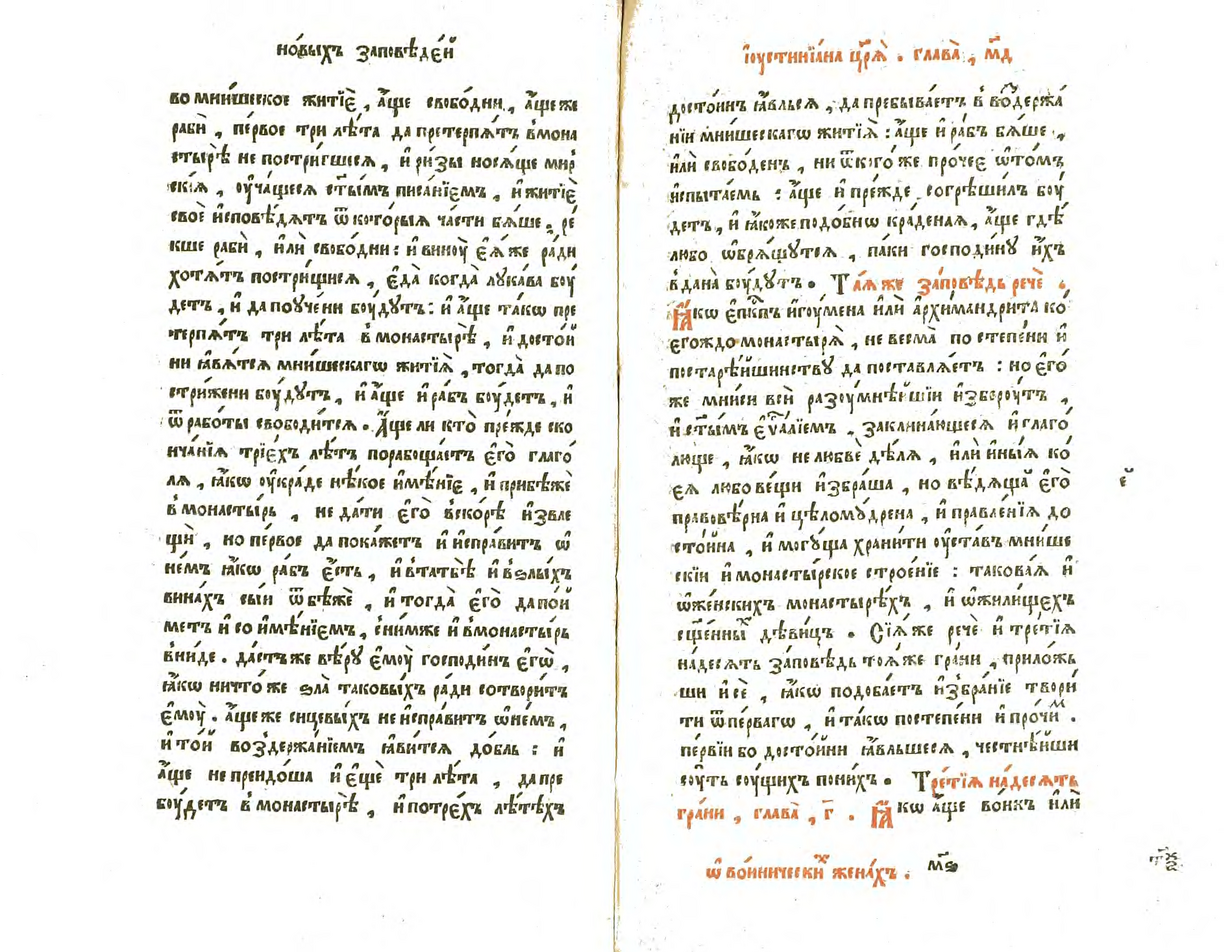 но́выхъ за́повѣде́й
во мни́шеское житїѐ, а҆́ще свобо́дни, а҆́ще же
рабѝ, пе́рвое три лѣ́та да претерпѧ́тъ в̾мона
стырѣ̀ не постри́гшесѧ, и҆ ри́зы носѧ́ще мир
скі́ѧ, оу҆ча́щесѧ ст҃ы́мъ писа́нїемъ, и҆ житїѐ
своѐ и҆сповѣ́дѧтъ ѿ кото́рыѧ ча́сти бѧ́ше, ре́
кше рабѝ, и҆лѝ свобо́дни: и҆ винꙋ̀ є҆ѧ́же ра́ди
хотѧ́тъ постри́щисѧ, є҆да̀ когда̀ лꙋка́ва бꙋ́
детъ, и҆ да поуче́ни бꙋ́дутъ: и҆ а҆́ще та́кѡ пре
терпѧ́тъ три лѣ́та в̾ монастырѣ̀, и҆ досто́й
ни ꙗ҆вѧ́тсѧ мни́шескагѡ житїѧ̀, тогда̀ да по
стри́жени бꙋ́дутъ, и҆ а҆́ще и҆ ра́бъ бꙋ́детъ, и҆
ѿ рабо́ты свободи́тсѧ. А҆́ще ли кто̀ пре́жде ско
нча́нїѧ трїе́хъ лѣ́тъ порабоща́етъ є҆го̀ глаго́
лѧ, ꙗ҆́кѡ оу҆кра́де нѣ́кое и҆мѣ́нїе, и҆ прибѣжѐ
в̾ монасты́рь, не да́ти є҆го̀ вско́рѣ и҆звле
щѝ, но пе́рвое да пока́жетъ и҆ и҆спра́витъ ѡ҆
не́мъ ꙗ҆́кѡ ра́бъ є҆́сть, и҆ в̾татьбѣ̀ и҆ в̾ѕлы́хъ
вина́хъ сы́и ѿбѣжѐ, и҆ тогда̀ є҆го̀ да по́й
метъ и҆ со и҆мѣ́нїемъ, с̾ни́мже и҆ в̾монасты́рь
вни́де. да́стъ же вѣ́рꙋ є҆мꙋ̀ господи́нъ є҆гѡ̀,
ꙗ҆́кѡ ничто́же ѕла̀ таковы́хъ ра́ди сотвори́тъ
є҆мꙋ̀. а҆́ще же сицевы́хъ не и҆спра́витъ ѡ҆не́мъ,
и҆ то́й воздержа́нїемъ ꙗ҆ви́тсѧ до́бль: и҆
а҆́ще не прендо́ша и҆ є҆щѐ три лѣ́та, да пре
бꙋ́детъ в̾ монастырѣ̀, и҆ по трє́хъ лѣ́тѣхъ
і҆ꙋстинїа́на цр҃ѧ̀. глава̀, м҃д
досто́инъ ꙗ҆́вльсѧ, да пребыва́етъ в̾ во́здержа́
нїи мни́шескагѡ житїѧ̀: а҆́ще и҆ ра́бъ бѧ́ше,
и҆лѝ свобо́денъ, ни ѿ кого́ же про́чее ѡ҆то́мъ
и҆спыта́емь: а҆́ще и҆ пре́жде согрѣши́лъ бꙋ́
детъ, и҆ ꙗ҆́коже подо́бнѡ кра́денаѧ, а҆́ще гдѣ̀
любо ѡ҆брѧ́щутсѧ, па́ки господи́нꙋ и҆́хъ
в̾дана̀ бꙋ́дутъ. Та́ѧ же за́повѣдь речѐ.
Ꙗ҆́кѡ є҆п҃кпъ и҆гꙋ́мена и҆лѝ а҆рхимандри́та ко́
егождо монастырѧ̀, не весма̀ по степе́ни и҆
постарѣ́йшинствꙋ да поставлѧ́етъ: но є҆го́
же мни́си всѝ разꙋмнѣ́йшїи и҆збер́ꙋтъ,
и҆ ст҃ы́мъ є҆ѵⷢ҇алїемъ, заклина́ющесѧ и҆ глаго́
люще, ꙗ҆́кѡ не любвѐ дѣ́лѧ, и҆лѝ и҆ны́ѧ ко́
еѧ любо ве́щи и҆збра́ша, но вѣ́дѧща̀ є҆го̀
правовѣ́рна и҆ цѣломꙋ́дрена, и҆ правле́нїѧ до
сто́йна, и҆ могꙋ́ща храни́ти оу҆ста́въ мни́ше
скїи и҆ монасты́рское строе́нїе: такова́ѧ и҆
ѡ҆же́нскихъ монастырѣ́хъ, и҆ ѡ҆жили́щехъ
сщ҃е́нныⷯ дѣви́цъ. Сїѧ́ же речѐ и҆ тре́тїѧ
на́десѧть за́повѣдь тоѧ́же гра́ни, прило́жь
ши и҆ сѐ, ꙗ҆́кѡ подоба́етъ и҆збра́нїе твори́
ти ѿ пе́рвагѡ, и҆ та́кѡ постепе́ни и҆ про́чиⷨ.
пе́рвїи бо досто́йни ꙗ҆́вльшесѧ, честнѣ́йши
сꙋ́ть сꙋ́щихъ пони́хъ. Тре́тїѧ на́десѧть
гра́ни, глава̀, г҃. Ꙗ҆́кѡ а҆́ще во́инъ и҆лѝ
є҃
ѡ҆ во́инническиⷯ жена́хъ. м҃ѕ